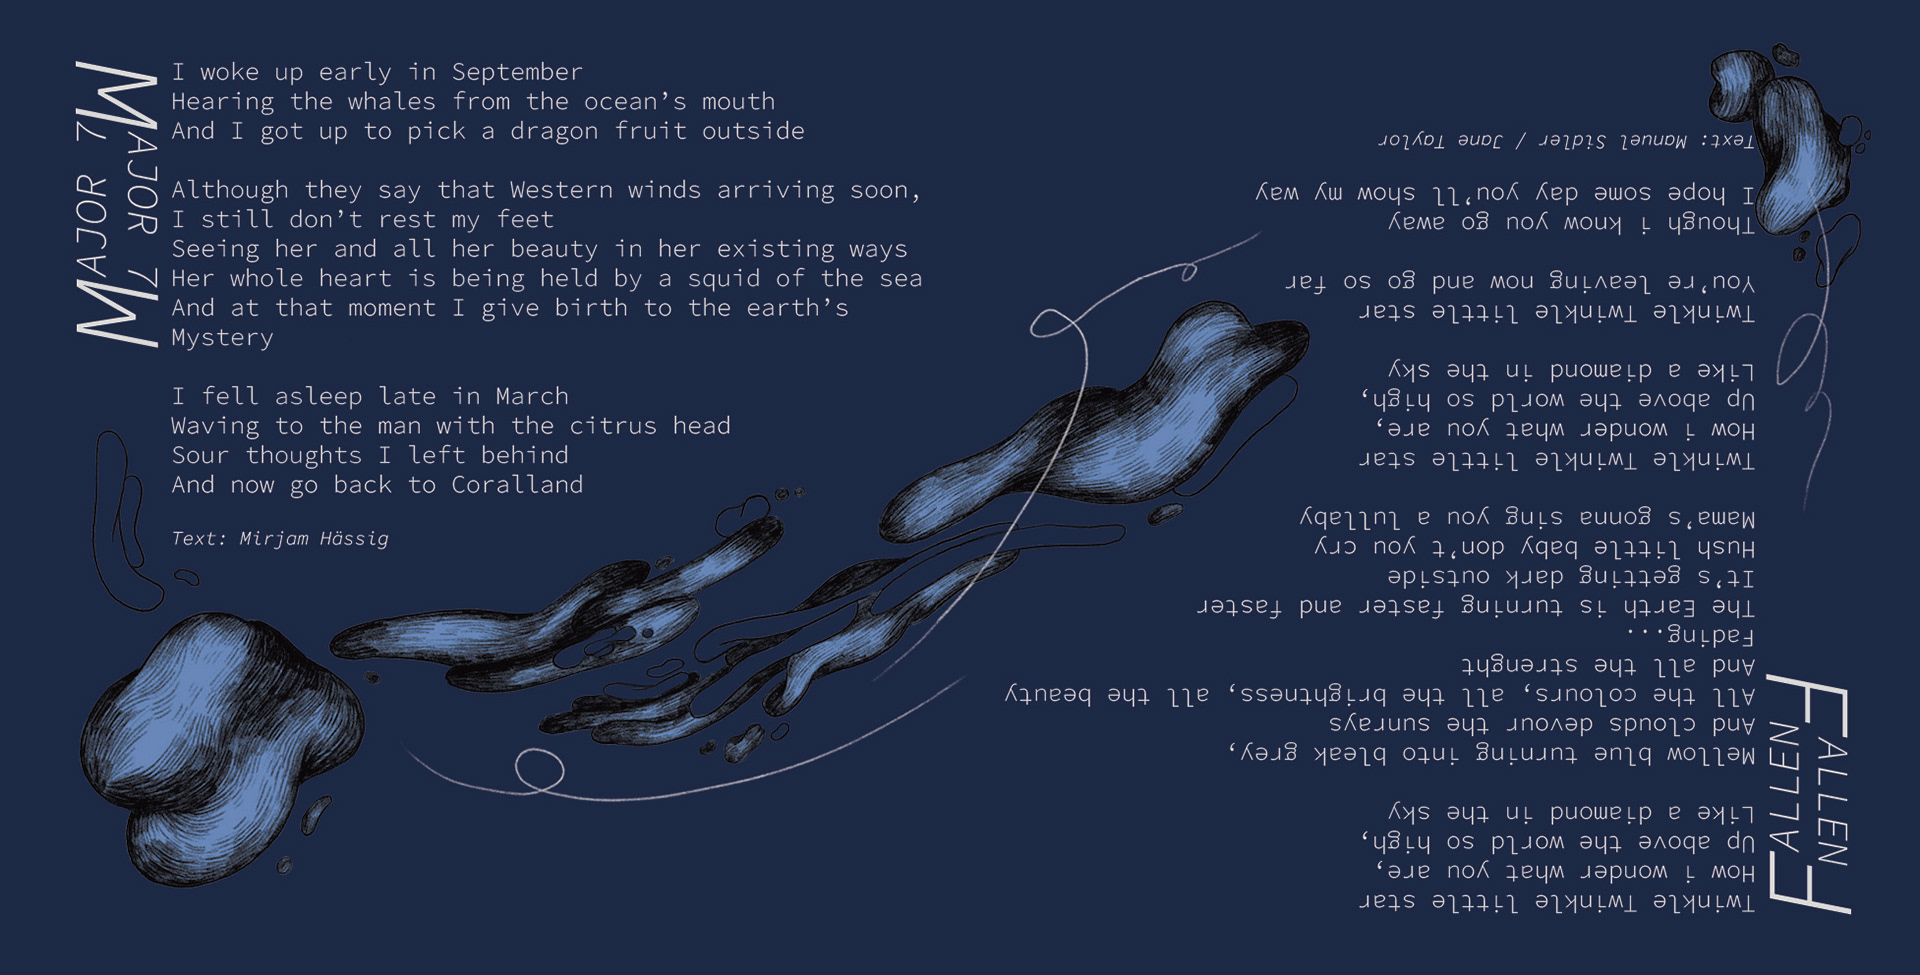 MAJOR 7
MAJOR 7
I woke up early in September
Hearing the whales from the ocean’s mouth
And I got up to pick a dragon fruit outside
Although they say that Western winds arriving soon,
I still don’t rest my feet
Seeing her and all her beauty in her existing ways
Her whole heart is being held by a squid of the sea
And at that moment I give birth to the earth’s
Mystery
I fell asleep late in March
Waving to the man with the citrus head
Sour thoughts I left behind
And now go back to Coralland
Text: Mirjam Hässig
FALLEN
FALLEN
Twinkle Twinkle little star
How i wonder what you are,
Up above the world so high,
Like a diamond in the sky
Mellow blue turning into bleak grey,
And clouds devour the sunrays
All the colours, all the brightness, all the beauty
And all the strenght
Fading...
The Earth is turning faster and faster
It’s getting dark outside
Hush little baby don’t you cry
Mama’s gonna sing you a lullaby
Twinkle Twinkle little star
How i wonder what you are,
Up above the world so high,
Like a diamond in the sky
Twinkle Twinkle little star
You’re leaving now and go so far
Though i know you go away
I hope some day you’ll show my way
Text: Manuel Sidler / Jane Taylor